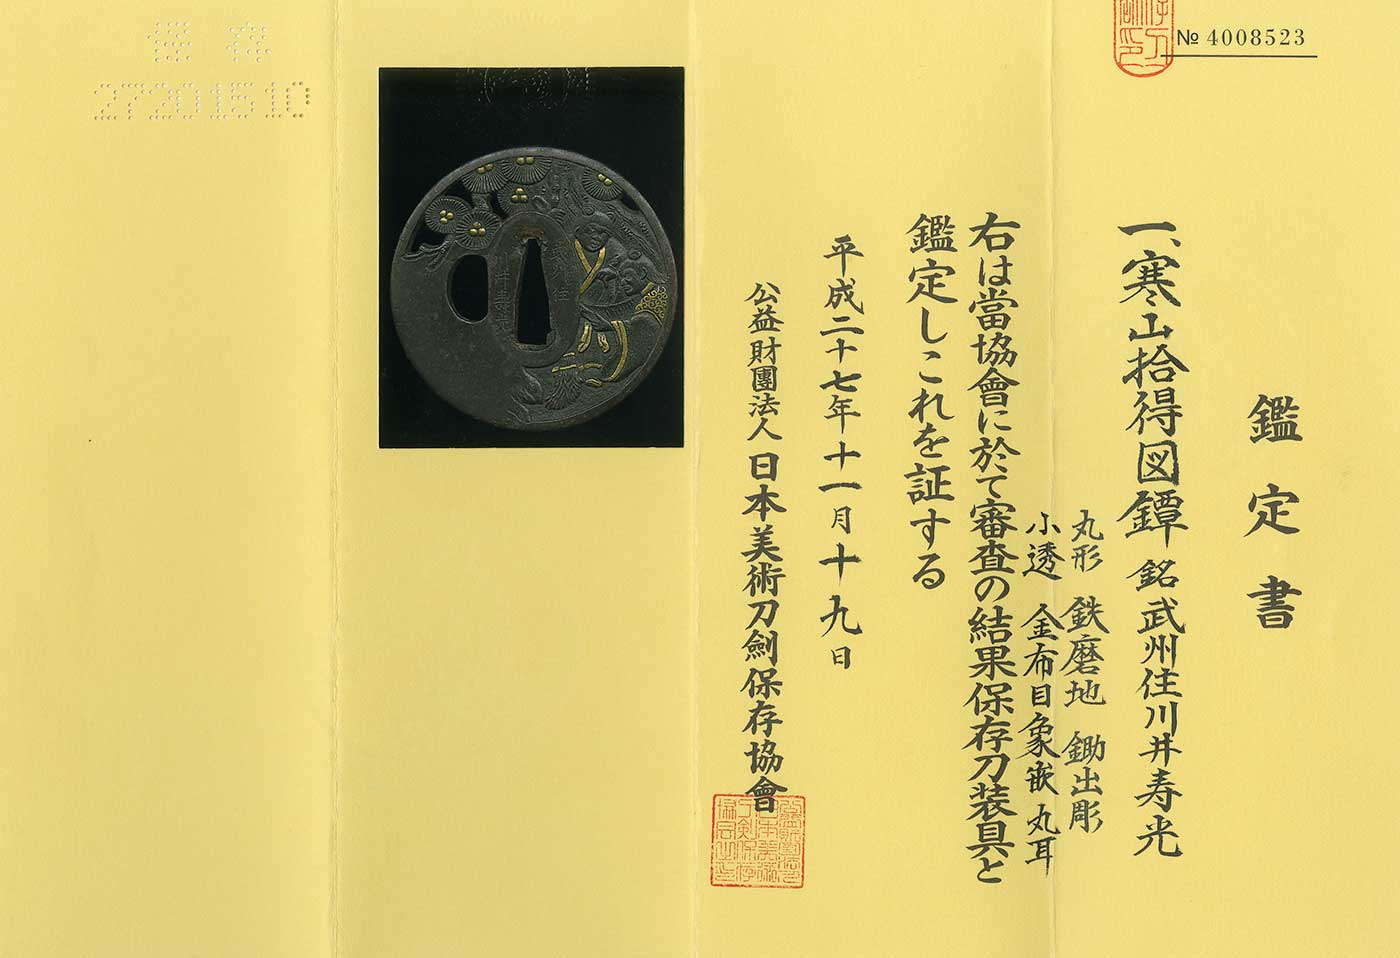 № 4008523
鑑定書
一、寒山拾得図鐔 銘 武州住川井寿光
丸形 鉄磨地 鋤出彫
小透 金布目象嵌 丸耳
右は當協會に於て審査の結果保存刀装具と
鑑定しこれを証する
平成二十七年十一月十九日
公益財團法人日本美術刀劍保存協會
保存
27201510